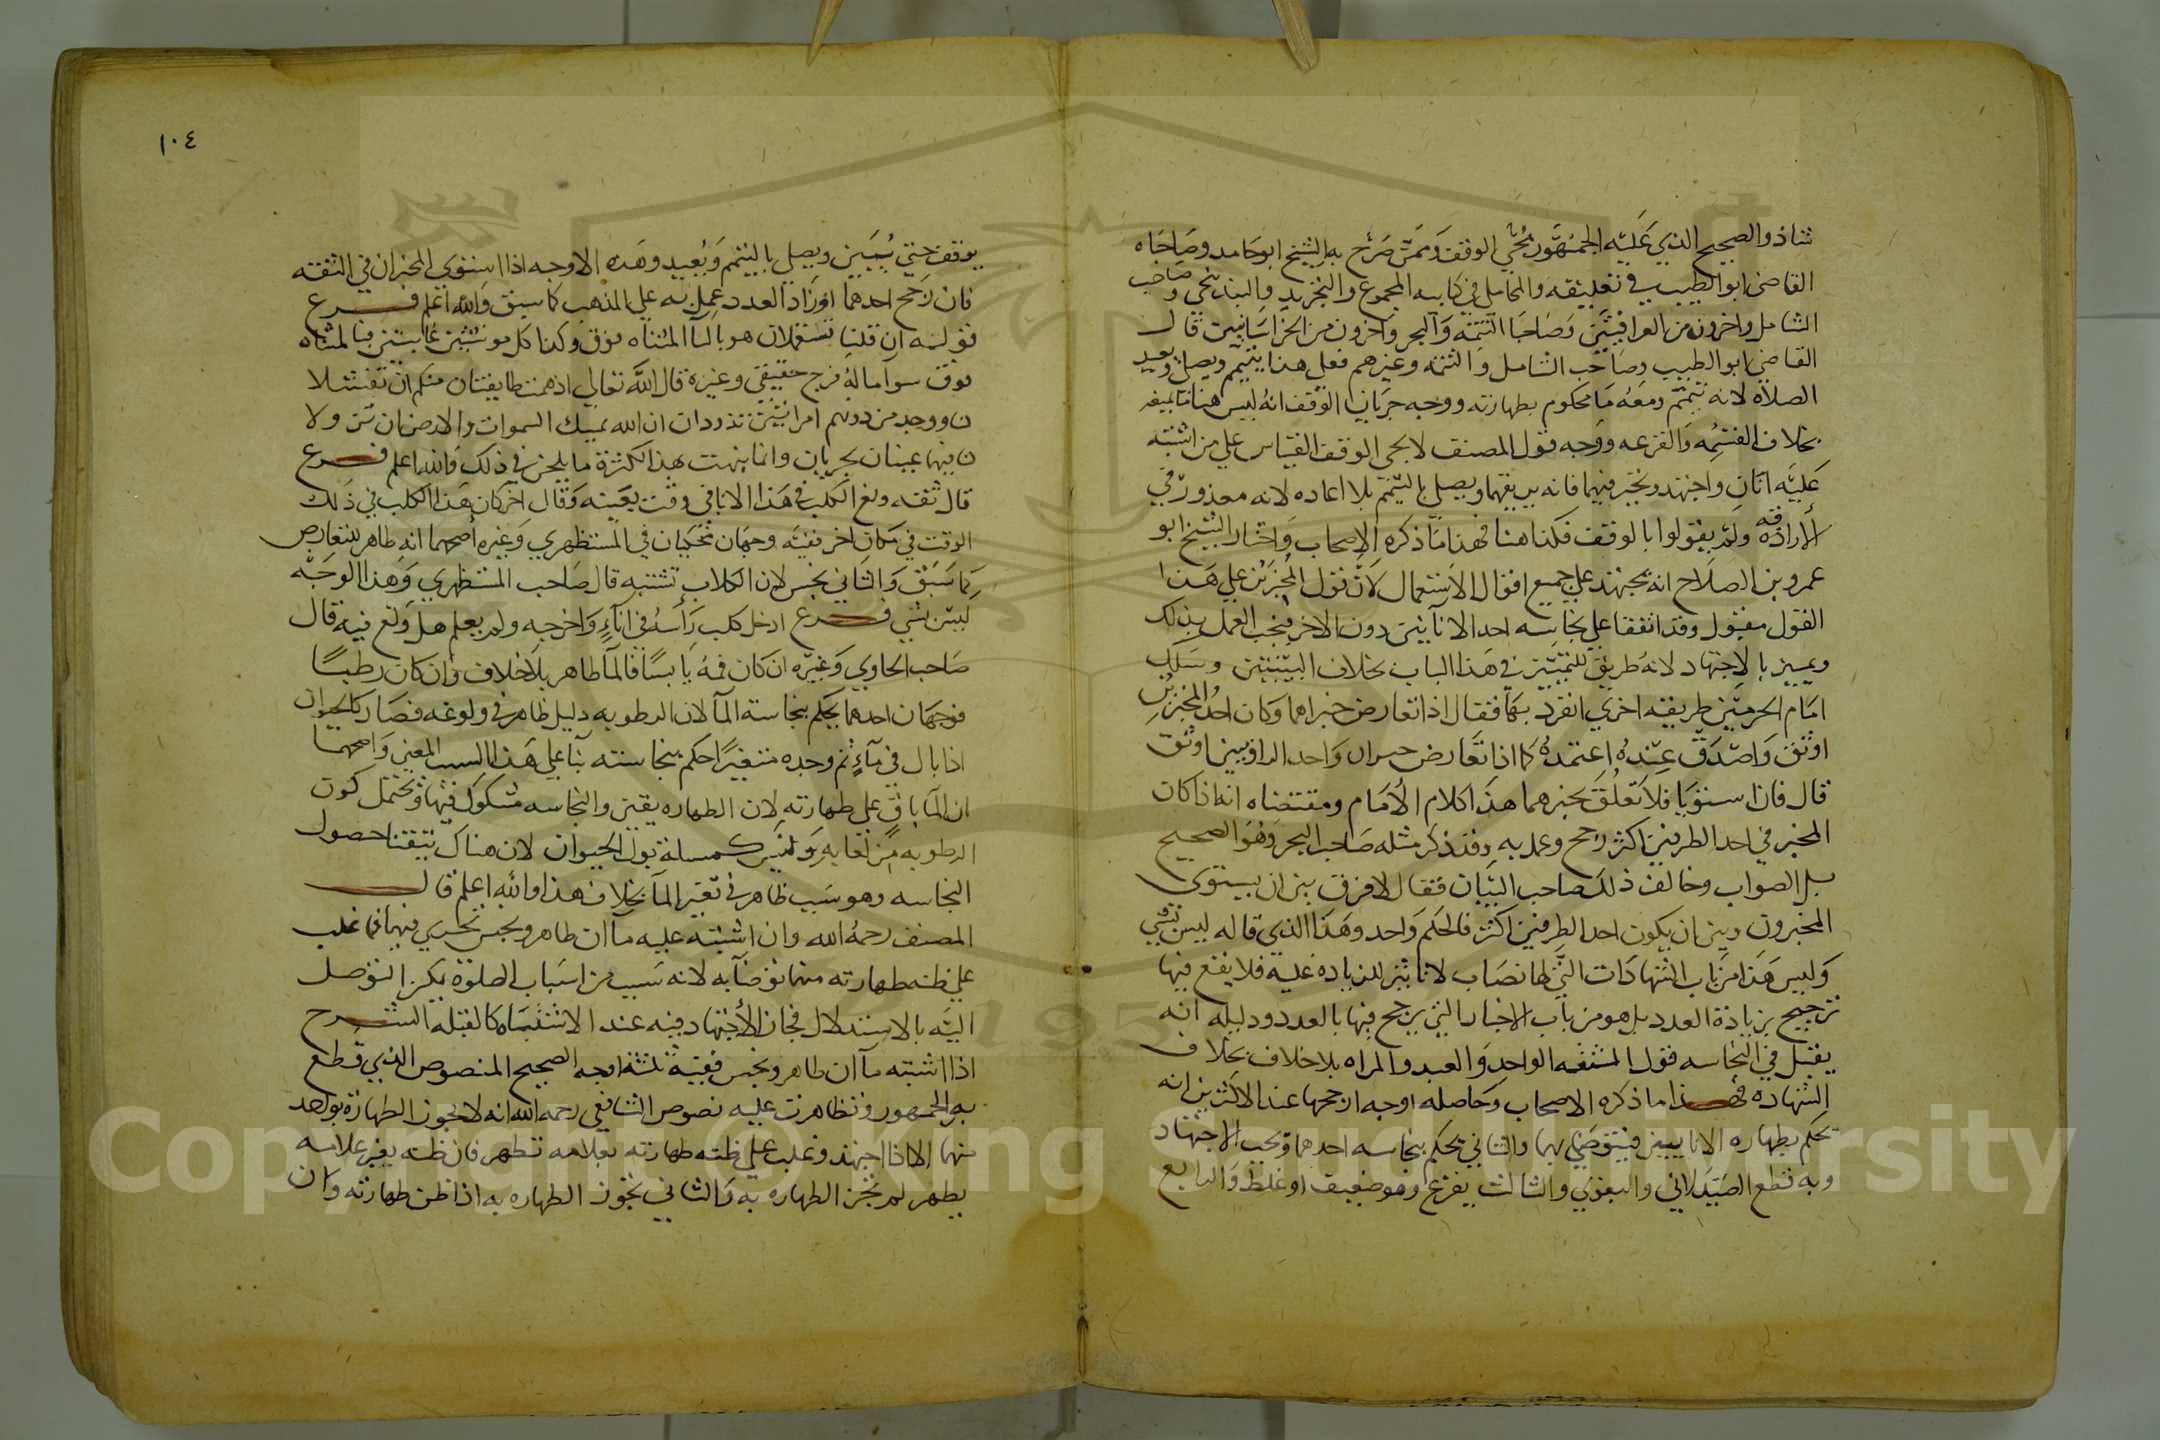 شاذ والصحيح الذي عليه الجمهور مجي الوقف وممن صرح به الشيخ ابو حامد وصاحباه
القاضي ابو الطيب في تعليقه والمحاملي في كتابيه المجموع والتجريد والبندنيجي وصاحب
الشامل واخرون من العراقيين وصاحبا التتمة والبحر واخرون من الخراسانيين قال
القاضي ابو الطيب وصاحب الشامل والتتمه وغيرهم فعلي هذا يتيمم ويصلي ويعيد
الصلاه لانه تيمم ومعه ما محكوم بطهارته ووجه جريان الوقف انه ليس هنا ما يمنعه
بخلاف القسمه والقرعه ووجه قول المصنف لا يجي الوقف القياس علي من اشتبه
عليه اناان واجتهد وتحير فيهما فانه يريقهما ويصلي بالتيمم بلا اعاده لانه معذور في
الاراقه ولم يقولوا بالوقف فكذا هنا فهذا ما ذكره الاصحاب واختار الشيخ ابو
عمرو بن الصلاح انه يجتهد علي جميع اقوال الاستعمال لان قول المخبرين علي هذا
القول مقبول وقد اتفقا علي نجاسه احد الاناين دون الاخر فيجب العمل بذلك
ويميز بالاجتهاد لانه طريق للتمييز في هذا الباب بخلاف البينتين وسلك
امام الحرمين طريقه اخري انفرد بها فقال اذا تعارض خبراهما وكان احد المخبرين
اوثق واصدق عنده اعتمده كما اذا تعارض خبران واحد الراويين اوثق
قال فان استويا فلا تعلق بخبرهما هذا كلام الامام ومقتضاه انه اذا كان
المخبر في احد الطرفين اكثر رجح وعمل به وقد ذكر مثله صاحب البحر وهو الصحيح
بل الصواب وخالف ذلك صاحب البيان فقال لا فرق بين ان يستوي
المخبرون وبين ان يكون احد الطرفين اكثر فالحكم واحد وهذا الذي قاله ليس بشي
وليس هذا من باب الشهادات التي لها نصاب لا تاثير للزياده عليه فلا يقع فيها
ترجيح بزيادة العدد بل هو من باب الاخبار التي يرجح فيها بالعدد ودليله انه
يقبل في النجاسه قول الثقه الواحد والعبد والمراه بلا خلاف بخلاف
الشهاده فهذا ما ذكره الاصحاب وحاصله اوجه ارجحها عند الاكثرين انه
يحكم بطهاره الاناين فيتوضي بهما والثاني يحكم بنجاسه احدهما ويجب الاجتهاد
وبه قطع الصيدلاني والبغوي والثالث يقرع وهو ضعيف او غلط والرابع
١٠٤
يوقف حتي يتبين ويصلي بالتيمم ويعيد وهذه الاوجه اذا استوي المخبران في الثقه
فان رجح احدهما او زاد العدد عمل به علي المذهب كما سبق والله اعلم فرع
قوله ان قلنا تستعملان هو بالتا المثناه فوق وكذا كل مونثتين غايبتين فبالمثناه
فوق سوا ما له فرج حقيقي وغيره قال الله تعالي اذ همت طايفتان منكم ان تفشلا
ن ووجد من دونهم امراتين تذودان ان الله يمسك السموات والارض ان تزولا
ن فيهما عينان تجريان وانما نبهت بهذا لكثرة ما يلحن في ذلك والله اعلم فرع
قال ثقه ولغ الكلب في هذا الانا في وقت بعينه وقال اخر كان هذا الكلب في ذلك
الوقت في مكان اخر ففيه وجهان محكيان في المستظهري وغيره اصحهما انه طاهر للتعارض
كما سبق والثاني نجس لان الكلاب تشتبه قال صاحب المستظهري وهذا الوجه
ليس بشي فرع ادخل كلب راسه في اناء واخرجه ولم يعلم هل ولغ فيه قال
صاحب الحاوي وغيره ان كان فمه يابسا فالما طاهر بلا خلاف وان كان رطبا
فوجهان احدهما يحكم بنجاسته الما لان الرطوبه دليل ظاهر في ولوغه فصار كالحيوان
اذا بال في ماء ثم وجده متغيرا حكم بنجاسته بنا علي هذا السبب المعين واصحهما
ان الما باق علي طهارته لان الطهاره يقين والنجاسه مشكوك فيها ويحتمل كون
الرطوبه من لعابه وليس كمسلة بول الحيوان لان هناك تيقنا حصول
النجاسه وهو سبب ظاهر في تغير الما بخلاف هذا والله اعلم قال
المصنف رحمه الله وان اشتبه عليه ماان طاهر ونجس تحري فيهما فما غلب
علي ظنه طهارته منهما توضا به لانه سبب من اسباب الصلوة يمكن التوصل
اليه بالاستدلال فجاز الاجتهاد فيه عند الاشتباه كالقبله الشرح
اذا اشتبه ماان طاهر ونجس ففيه ثلثة اوجه الصحيح المنصوص الذي قطع
به الجمهور وتظاهرت عليه نصوص الشافعي رحمه الله انه لا يجوز الطهارة بواحد
منهما الا اذا اجتهد وغلب علي ظنه طهارته بعلامه تظهر فان ظنه بغير علامه
يظهر لم تجز الطهاره به والثاني تجوز الطهاره به اذا ظن طهارته وان
Copyright © King Saud University
1957